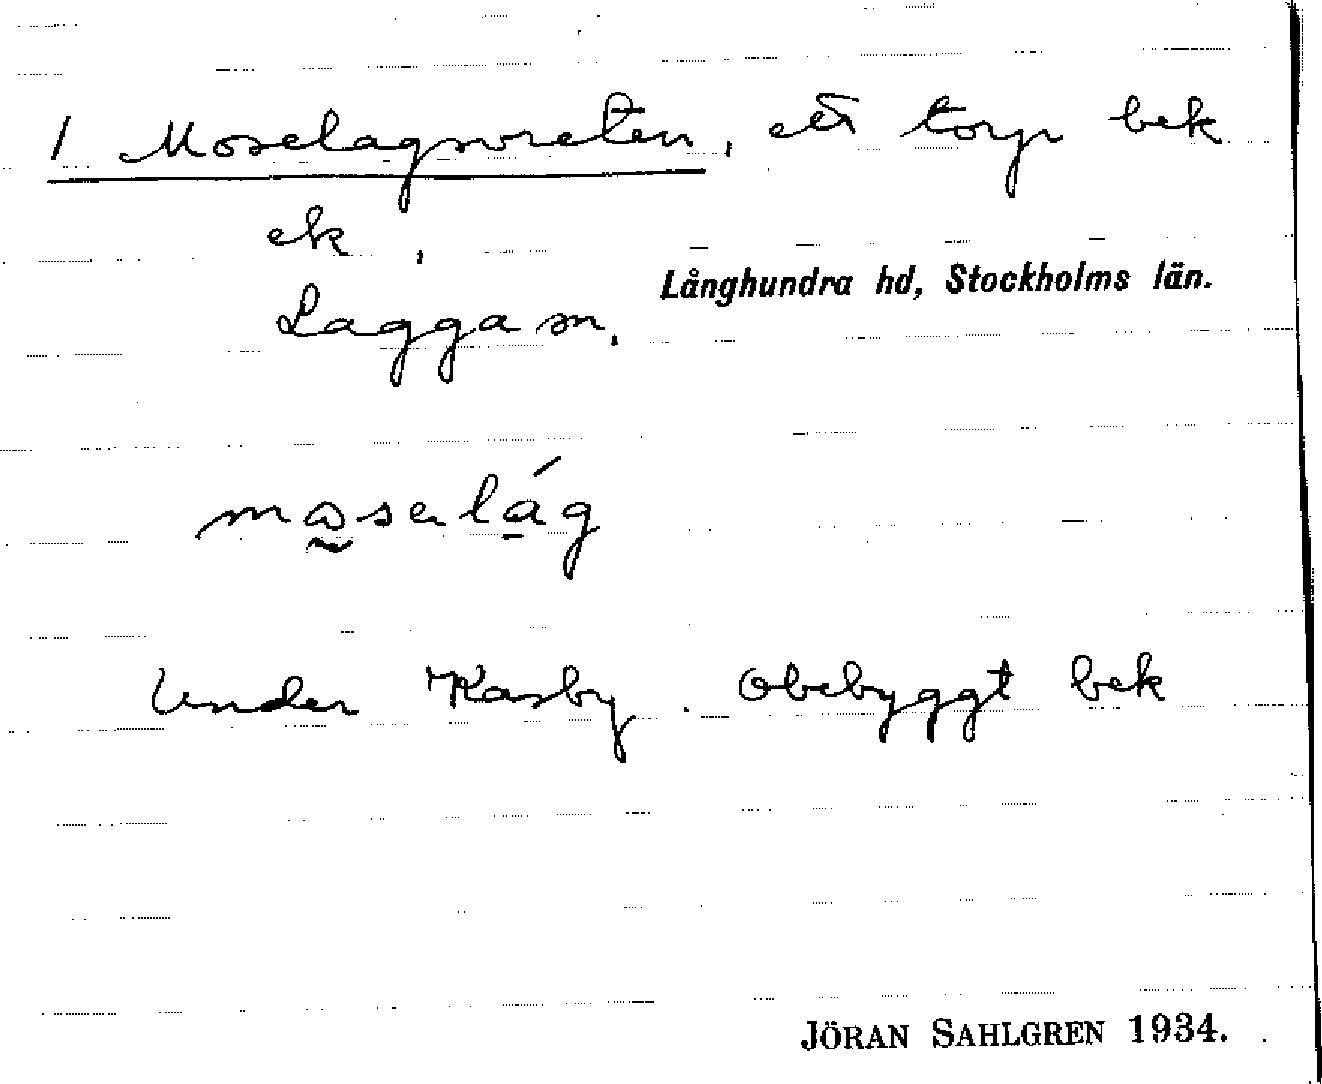 1 Moselagsvreten, ett torp bek
ek,
Långhundra hd, Stockholms län.
Lagga sn,
Under Kasby. Obebyggt bek
JÖRAN SAHLGREN 1934.